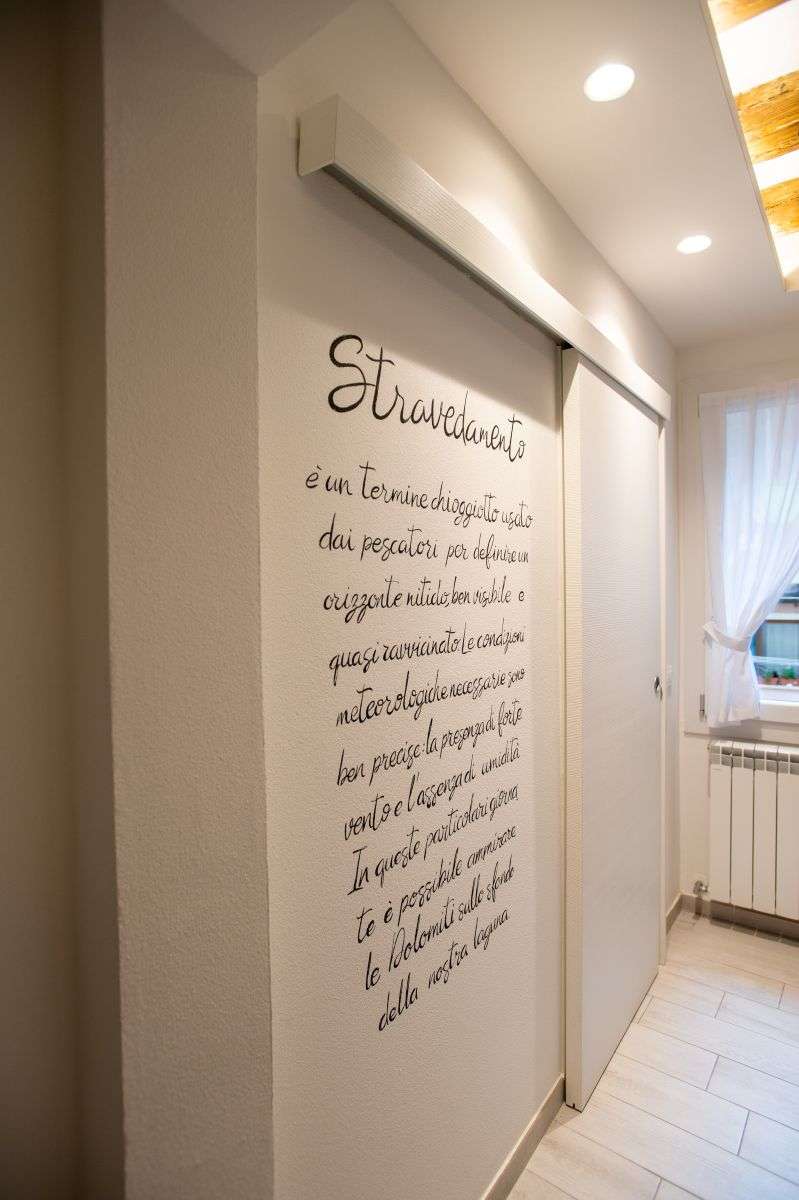 Stravedamento
è un termine chioggiotto usato
dai pescatori per definire un
orizzonte nitido, ben visibile e
quasi ravvicinato. Le condizioni
meteorologiche necessarie sono
ben precise: la presenza di forte
vento e l'assenza di umidità
In queste particolari giorna
te è possibile ammirare
le Dolomiti sullo sfondo
della nostra laguna